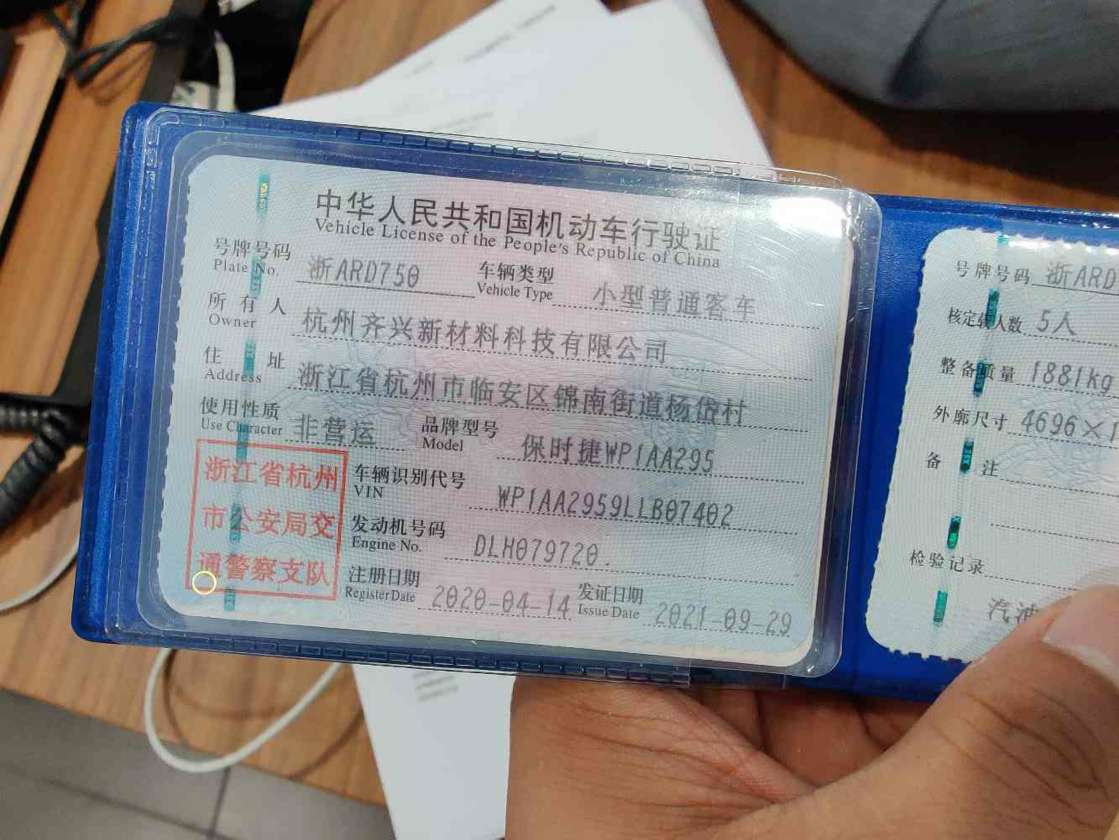 中华人民共和国机动车行驶证
Vehicle License of the People's Republic of China
号牌号码 浙ARD750 车辆类型 小型普通客车
Plate No. Vehicle Type
所有人 杭州齐兴新材料科技有限公司
Owner
住址 浙江省杭州市临安区锦南街道杨岱村
Address
使用性质 非营运 品牌型号 保时捷WP1AA295
Use Character Model
浙江省杭州
市公安局交
通警察支队
车辆识别代号 WP1AA2959LLB07402
VIN
发动机号码 DLH079720.
Engine No.
注册日期 2020-04-14 发证日期 2021-09-29
Register Date Issue Date
号牌号码 浙ARD
核定载人数 5人
整备质量 1881kg
外廓尺寸 4696×1
备注
检验记录
汽油